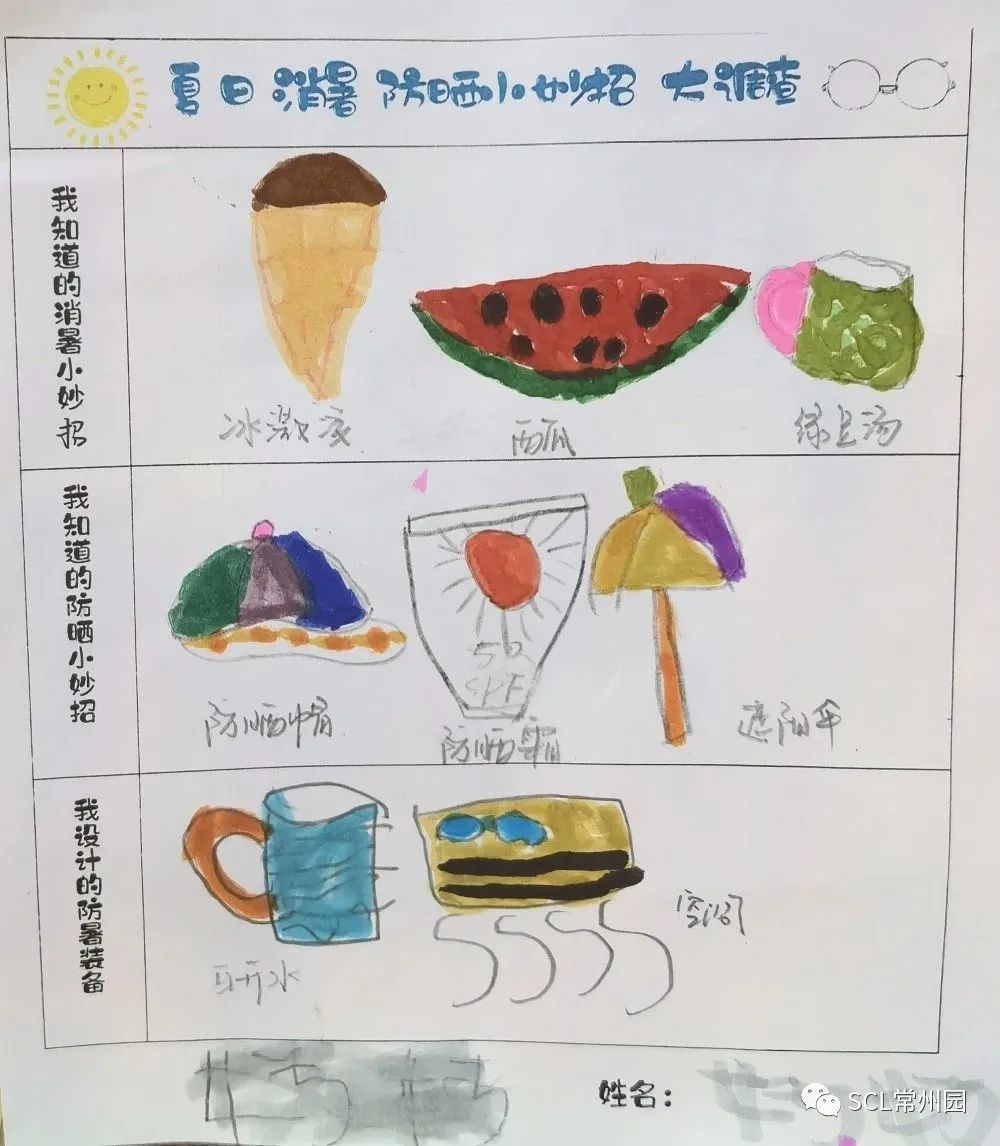 夏日消暑 防晒小妙招 大调查
我知道的消暑小妙招
冰激凌
西瓜
绿豆汤
我知道的防晒小妙招
50
SPF
防晒帽
防晒霜
遮阳伞
我设计的防暑装备
空调
开水
姓名：
SCL常州园